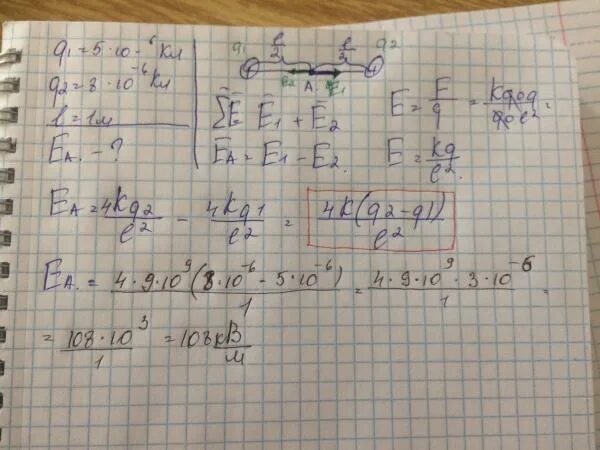 q1 = 5·10⁻⁶ Кл
q2 = 8·10⁻⁶ Кл
l = 1м
EA. - ?
q1 l/2 l/2 q2
E2 A E1
ΣE̅ = E̅1 + E̅2
E̅A = E1 - E2.
E = F/q = kq0q/q0l² =
E = kq/l².
EA = 4kq2/l² - 4kq1/l² = 4k(q2-q1)/l²
EA. = 4·9·10⁹(8·10⁻⁶ - 5·10⁻⁶)/1 = 4·9·10⁹·3·10⁻⁶/1 =
= 108·10³/1 = 108кВ/м